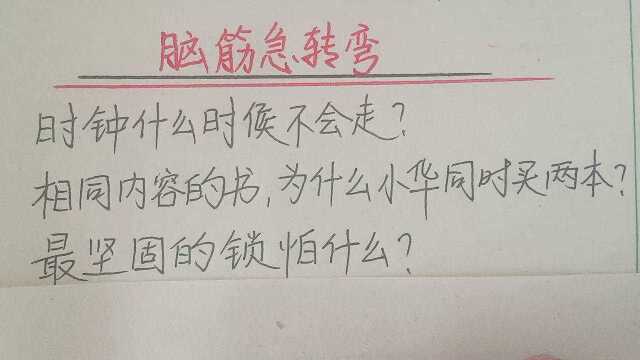 脑筋急转弯
时钟什么时候不会走?
相同内容的书,为什么小华同时买两本?
最坚固的锁怕什么?